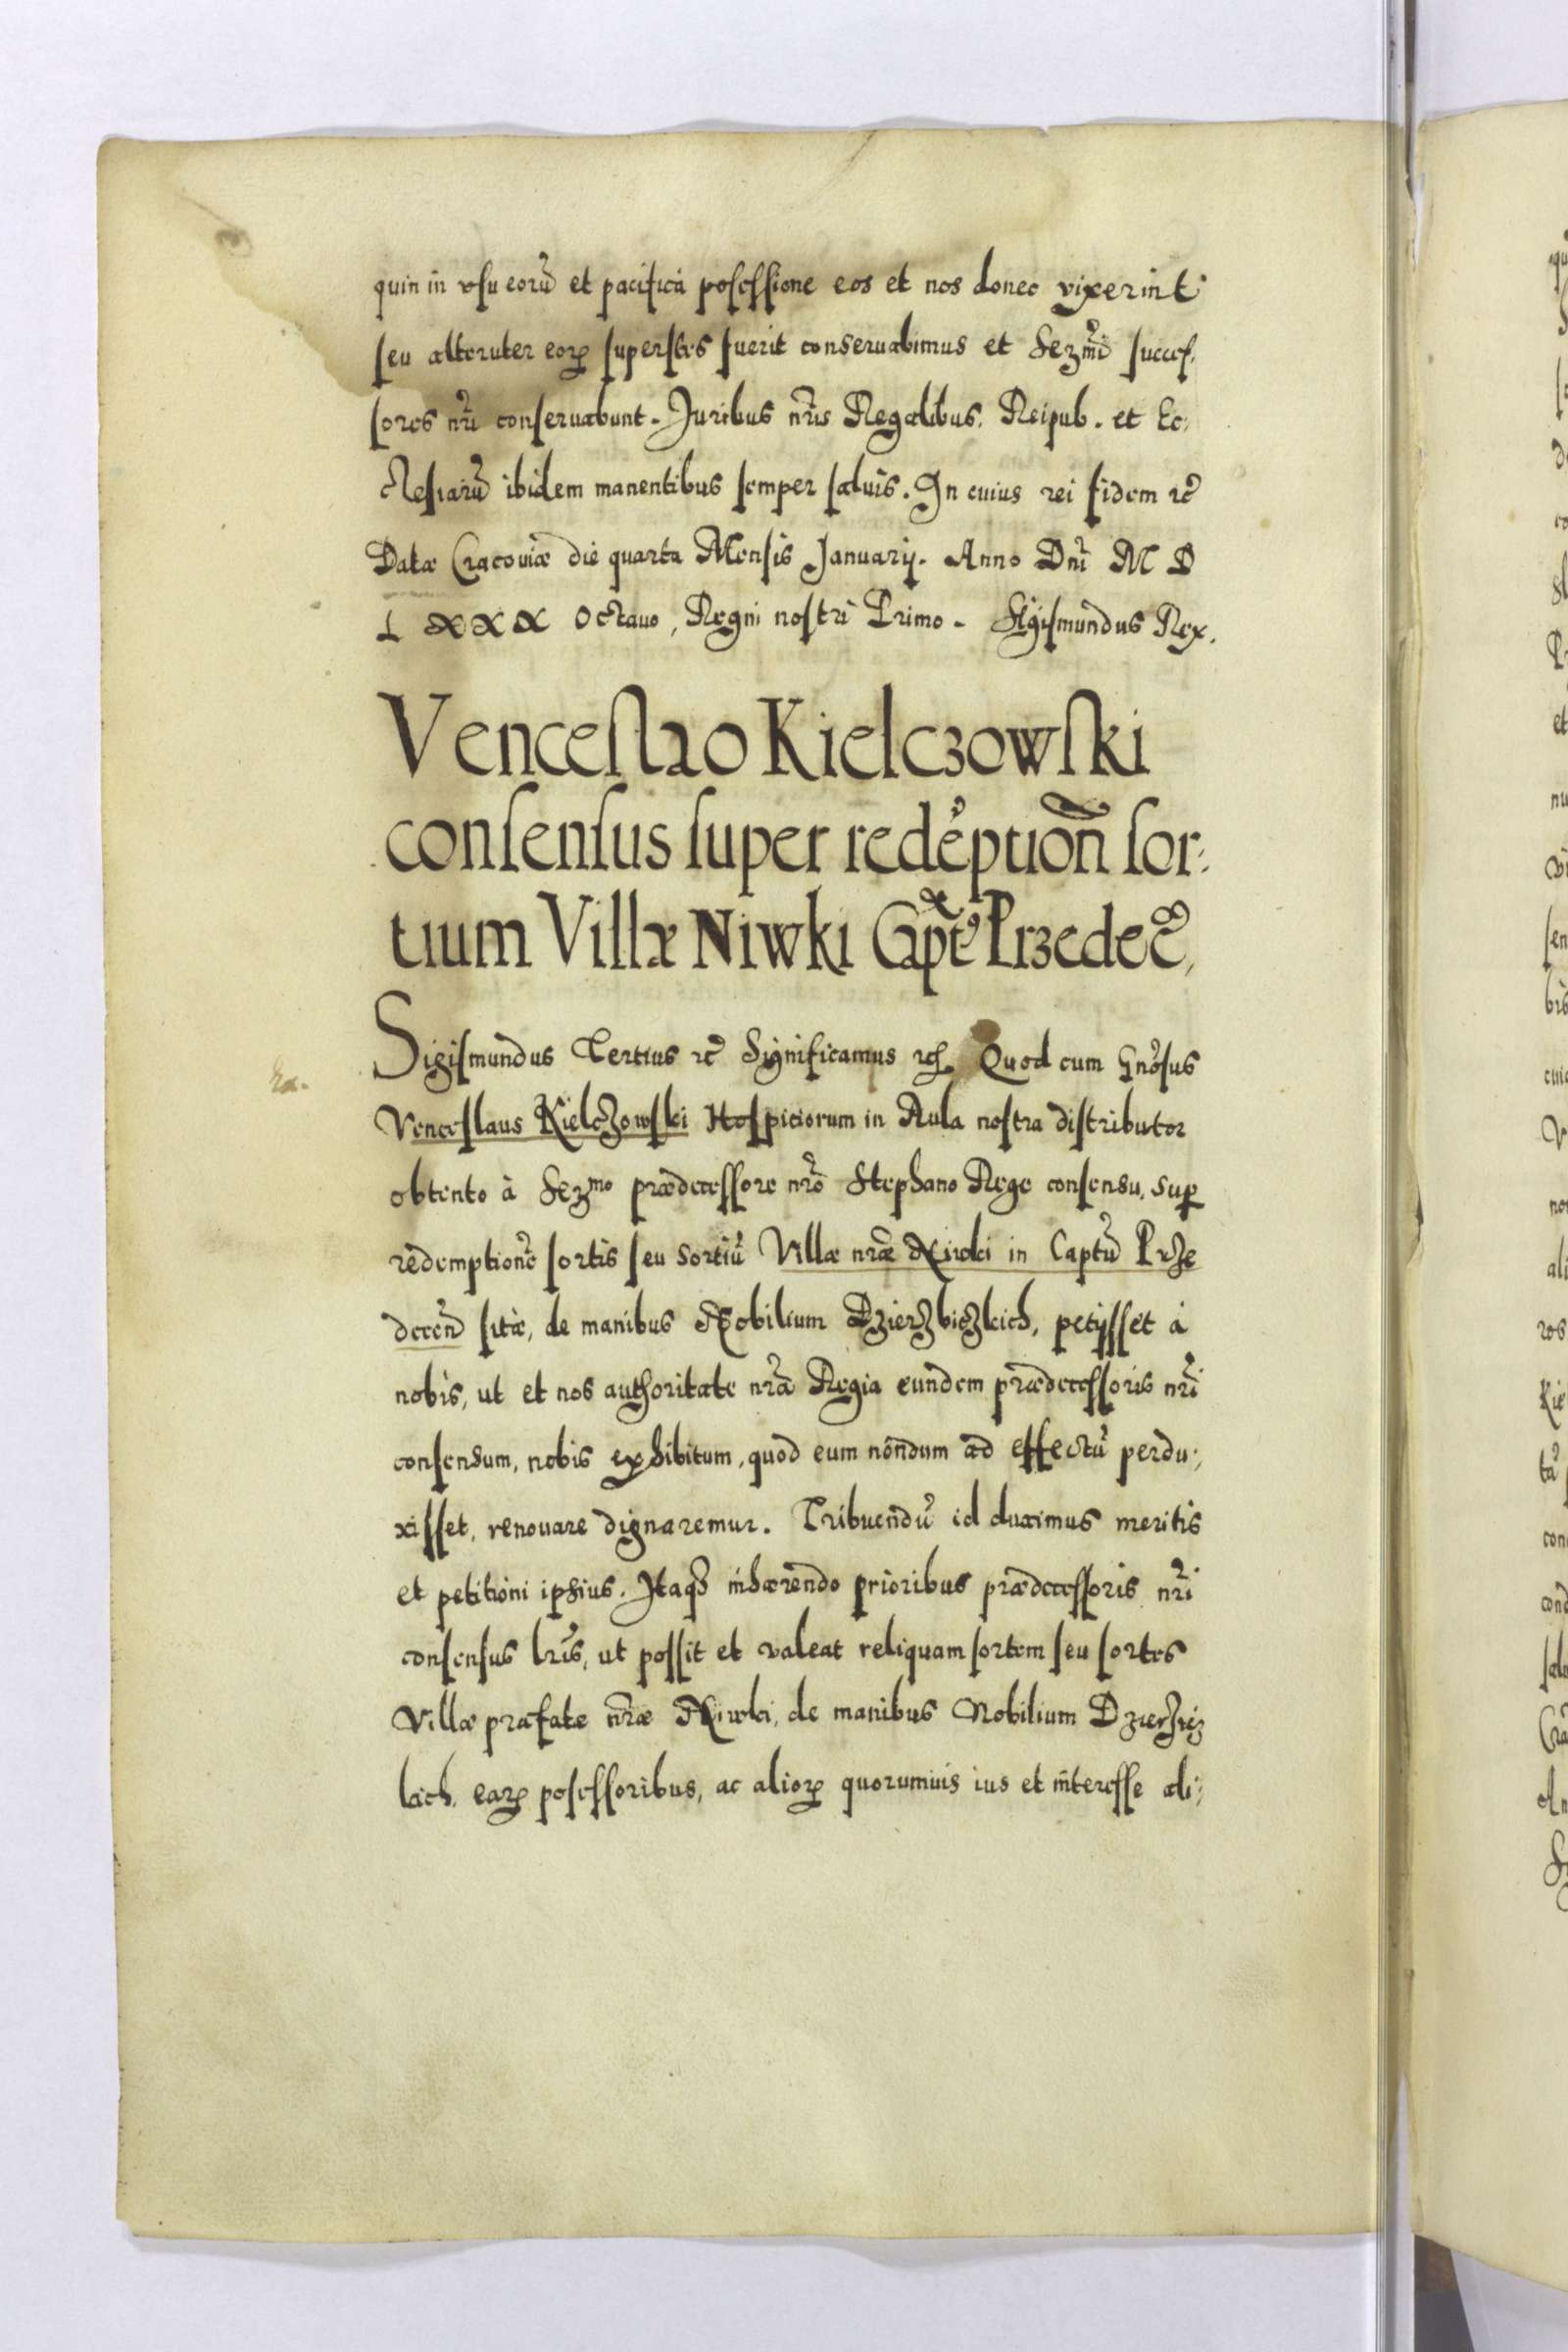 quin in vsu eorũ et pacifica posessione eos et nos donec vixerint
seu alteruter eorꝝ superstes fuerit conseruabimus et Serẽmi succes,
sores nr̃i conseruabunt. Juribus nr̃is Regalibus, Reipub. et Ec,
clesiarũ ibidem manentibus semper saluis. In cuius rei fidem ꝛc̃
Datæ Cracouiæ die quarta Mensis Januarij. Anno Dni M D
L XXX Octauo, Regni nostri Primo. Sigismundus Rex.
Venceslao Kielczowski
consensus super redẽption̄ sor,
tium Villæ Niwki Capt̃ Przedec̃,
Sigismundus Tertius ꝛc̃ Significamus ꝛc̃. Quod cum Gnõsus
Venceslaus Kielczowski Hospiciorum in Aula nostra distributor
obtento à Serᵐᵒ prædecessore nr̃o Stephano Rege consensu, Suꝑ
redemptionẽ sortis seu sortiũ Villæ nr̃æ Niwki in Captũ Prze
decen̄ sitæ, de manibus Nobilium Dzierzbiczkich, petijsset à
nobis, ut et nos authoritate nr̃a Regia eundem prædecessoris nr̃i
consensum, nobis exhibitum, quod eum nondum ad effectũ perdu,
xisset, renouare dignaremur. Tribuendũ id duximus meritis
et petitioni ipsius. Itaqꝫ inhærendo prioribus prædecessoris nr̃i
consensus lr̃is, ut possit et valeat reliquam sortem seu sortes
Villæ præfate nr̃æ Niwki, de manibus Nobilium Dzierzbicz
kich, earꝝ posessoribus, ac aliorꝝ quorumuis ius et interesse ali,